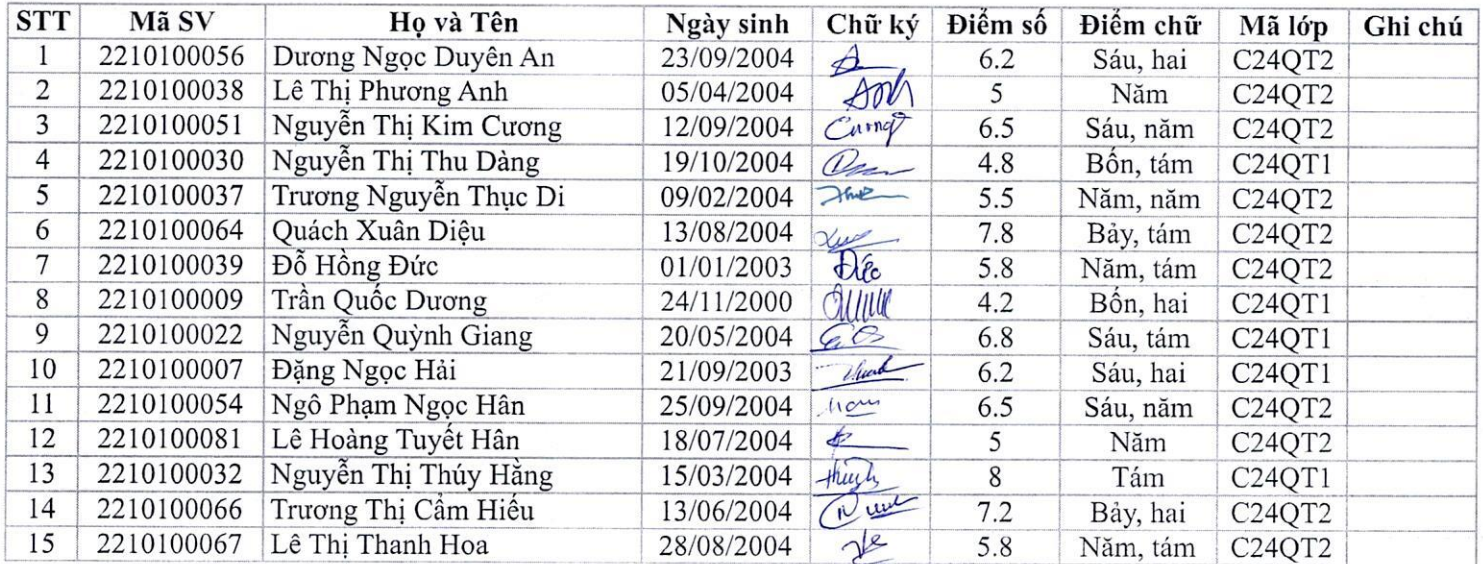 STT Mã SV Họ và Tên Ngày sinh Chữ ký Điểm số Điểm chữ Mã lớp Ghi chú
1 2210100056 Dương Ngọc Duyên An 23/09/2004 6.2 Sáu, hai C24QT2
2 2210100038 Lê Thị Phương Anh 05/04/2004 Anh 5 Năm C24QT2
3 2210100051 Nguyễn Thị Kim Cương 12/09/2004 Cương 6.5 Sáu, năm C24QT2
4 2210100030 Nguyễn Thị Thu Dàng 19/10/2004 4.8 Bốn, tám C24QT1
5 2210100037 Trương Nguyễn Thục Di 09/02/2004 5.5 Năm, năm C24QT2
6 2210100064 Quách Xuân Diệu 13/08/2004 7.8 Bảy, tám C24QT2
7 2210100039 Đỗ Hồng Đức 01/01/2003 Đức 5.8 Năm, tám C24QT2
8 2210100009 Trần Quốc Dương 24/11/2000 4.2 Bốn, hai C24QT1
9 2210100022 Nguyễn Quỳnh Giang 20/05/2004 6.8 Sáu, tám C24QT1
10 2210100007 Đặng Ngọc Hải 21/09/2003 6.2 Sáu, hai C24QT1
11 2210100054 Ngô Phạm Ngọc Hân 25/09/2004 6.5 Sáu, năm C24QT2
12 2210100081 Lê Hoàng Tuyết Hân 18/07/2004 5 Năm C24QT2
13 2210100032 Nguyễn Thị Thúy Hằng 15/03/2004 8 Tám C24QT1
14 2210100066 Trương Thị Cẩm Hiếu 13/06/2004 7.2 Bảy, hai C24QT2
15 2210100067 Lê Thị Thanh Hoa 28/08/2004 5.8 Năm, tám C24QT2